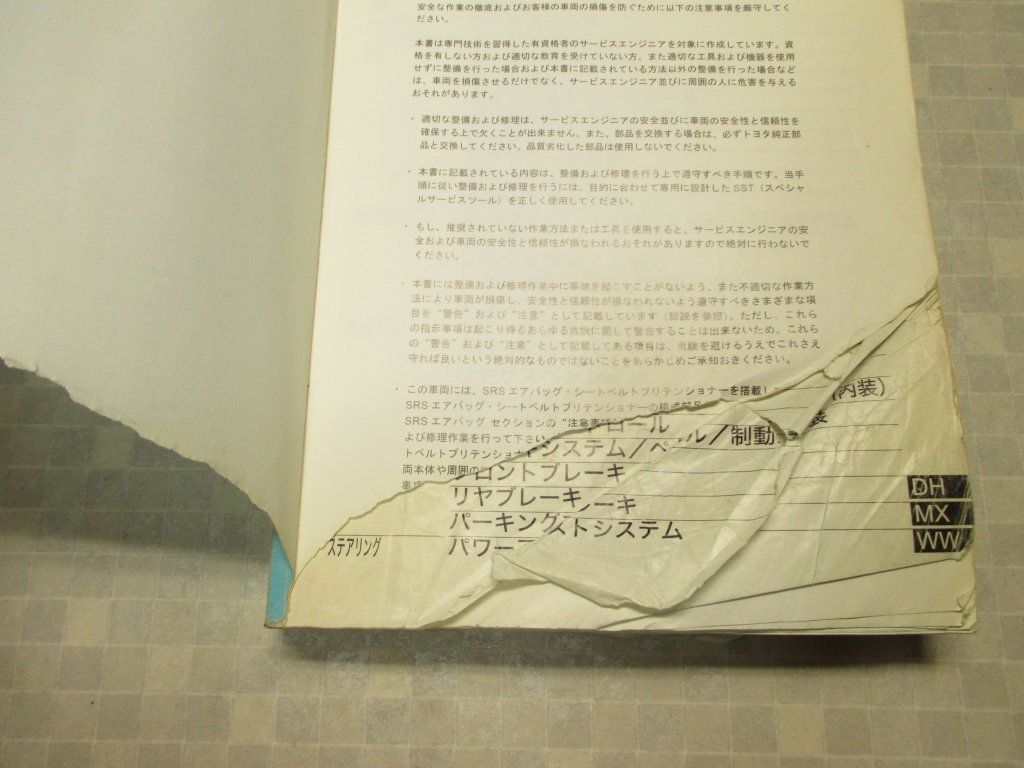 安全な作業の徹底およびお客様の車両の損傷を防ぐために以下の注意事項を厳守してく
ださい。
本書は専門技術を習得した有資格者のサービスエンジニアを対象に作成しています。資
格を有しない方および適切な教育を受けていない方、また適切な工具および機器を使用
せずに整備を行った場合および本書に記載されている方法以外の整備を行った場合など
は、車両を損傷させるだけでなく、サービスエンジニア並びに周囲の人に危害を与える
おそれがあります。
・適切な整備および修理は、サービスエンジニアの安全並びに車両の安全性と信頼性を
確保する上で欠くことが出来ません。また、部品を交換する場合は、必ずトヨタ純正部
品と交換してください。品質劣化した部品は使用しないでください。
・本書に記載されている内容は、整備および修理を行う上で遵守すべき手順です。当手
順に従い整備および修理を行うには、目的に合わせて専用に設計した SST（スペシャ
ルサービスツール）を正しく使用してください。
・もし、推奨されていない作業方法または工具を使用すると、サービスエンジニアの安
全および車両の安全性と信頼性が損なわれるおそれがありますので絶対に行わないで
ください。
・本書には整備および修理作業中に事故を起こすことがないよう、また不適切な作業方
法により車両が損傷し、安全性と信頼性が損なわれないよう遵守すべきさまざまな項
目を“警告”および“注意”として記載しています（解説を参照）。ただし、これら
の指示事項は起こり得るあらゆる危険に関して警告することは出来ないため、これら
の“警告”および“注意”として記載してある項目は、危険を避けるうえでこれさえ
守れば良いという絶対的なものではないことをあらかじめご承知おきください。
・この車両には、SRS エアバッグ・シートベルトプリテンショナーを搭載し
SRS エアバッグ・シートベルトプリテンショナーの構成部品
SRS エアバッグ セクションの“注意事
よび修理作業を行って下さい。
トベルトプリテンショナ
両本体や周囲の
（内装）
システム／ペ
ル／制動
フロントブレーキ
リヤブレーキ
ーキ
パーキング
ストシステム
ステアリング
パワー
DH
MX
WW